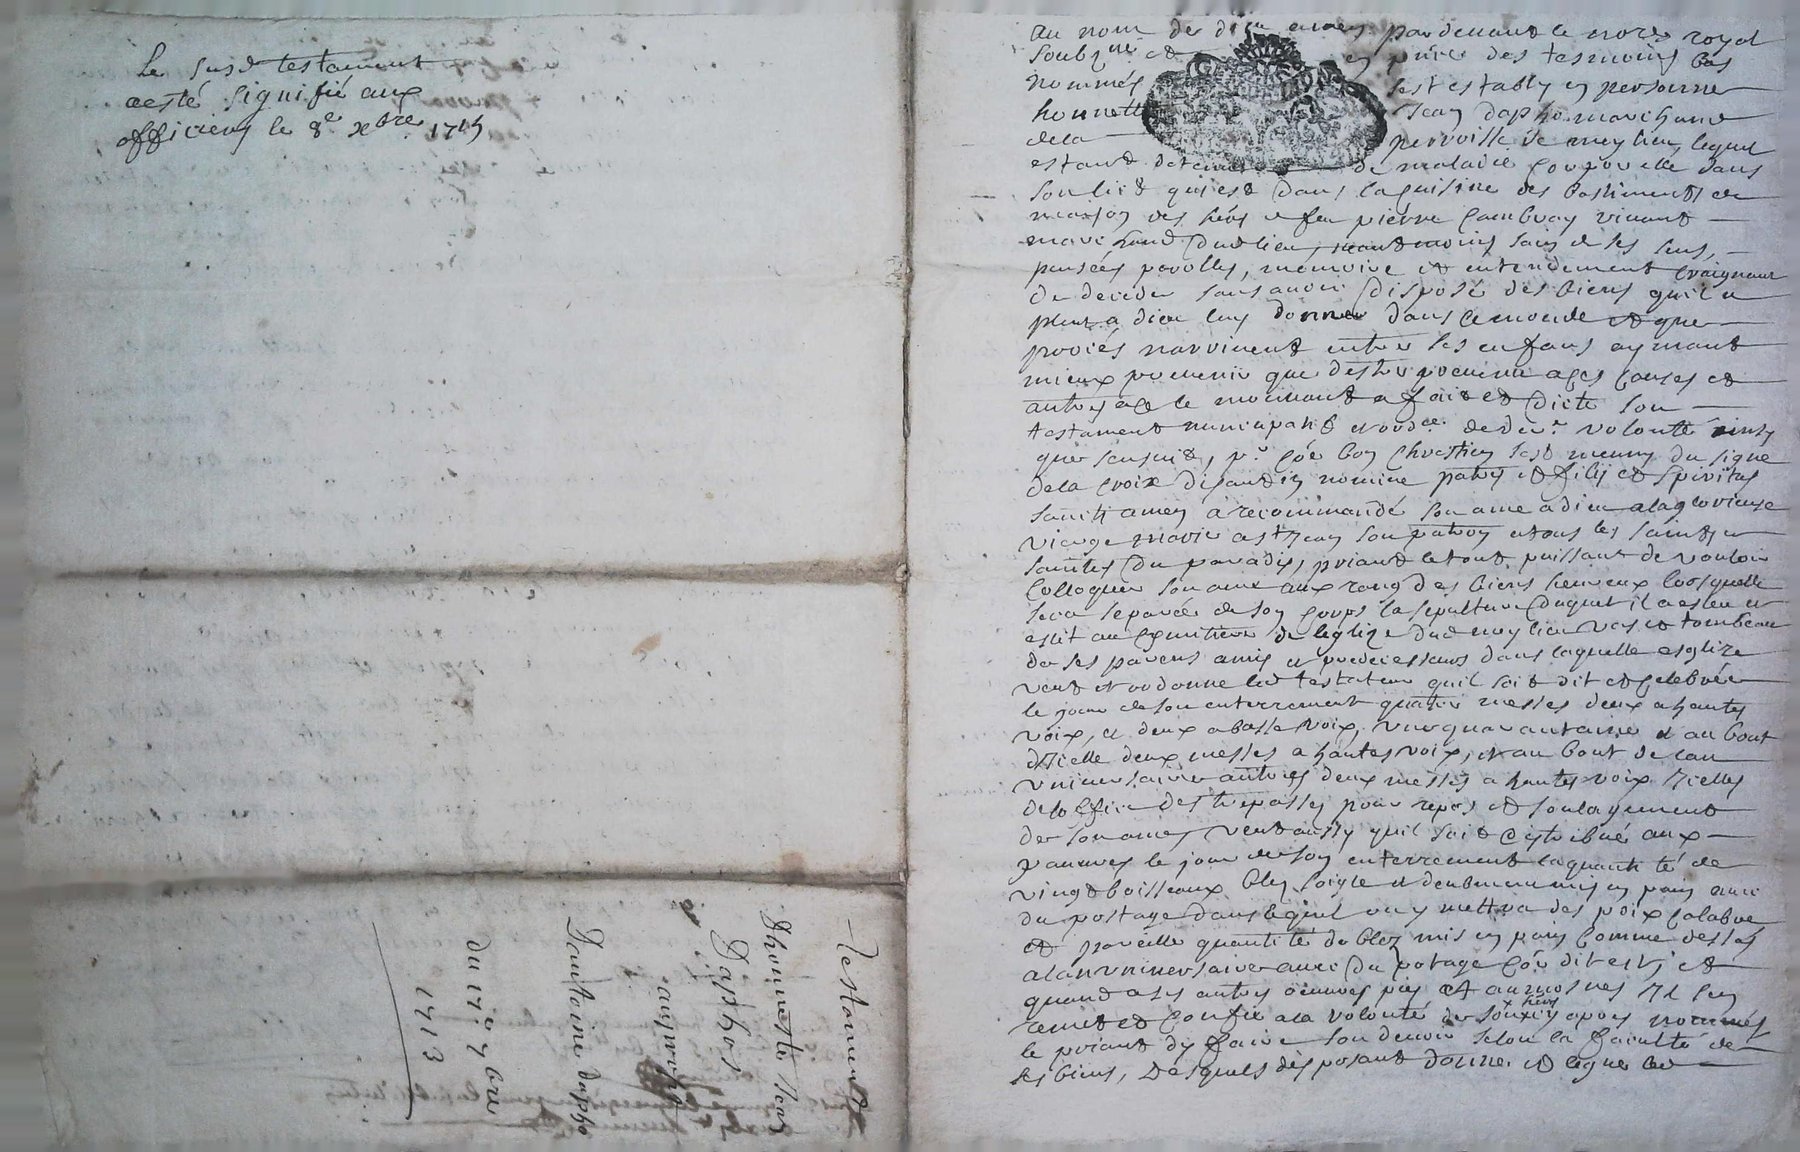 Le susd testament
aesté signifié aux
officiers le 8e xbre 1715
Testament
Dhonneste Jean
Daphos
au proffit
Dantoine dappho
du 15e 7bre
1713
au nom de dieu amen pardevant le nore royal
soubzne et en pnce des tesmoins bas
nommés sest estably en personne
honneste Jean Dapho marchand
dela perroisse de meylieu lequel
estand detenu de maladie corporelle dans
son lict quy est dans la cuisine des bastiments et
maison des hers de feu pierre vivant
marchand dud lieu, neantmoins sain de ses sens,
pensées parolles, memoire et entendement craignant
de deceder sans avoir disposé des biens quil a
pleut a dieu luy donner dans ce monde et que
procés narrivent entre ses enfans aymant
mieux prevenir que destre prevenu a ces causes et
autres a ce le mouvant a fait et dicté son
testament nuncupatif et ordce de der volonté ainsy
que sensuit, pr coe bon chrestien sest muny du signe
dela croix disant in nomine patris et filij et spiritus
sancti amen a recommandé son ame a dieu alaglorieuse
vierge marie a st Jean son patron et tous les saints et
saintes du paradis, priant le tout puissant de vouloir
colloquer son ame aux rang des biens heureux lorsquelle
sera separée de son corps la sepulture duquel il a esleu et
eslit au cymetiere de leglize dud meylieu vas et tombeau
de ses parens amis et predecesseurs dans laquelle esglize
veut et ordonne led testateur quil soit dit et celebrée
le jour de son enterrement quatre messes deux a hautes
voix, et deux a basse voix, une quarantaine et au bout
dicelle deux messes a hautes voix, et au bout de lan
universaire autres deux messes a hautes voix Icelles
de loffice des trepasses pour repos et soulagement
de son ame, veut aussy quil soit distribué aux
pauvres le jour de son enterrement la quantité de
vingt boisseaux bled soigle et deubment mis en pain avec
du postage dans lequel on y mettra des poix
et pareille quantité de bled mis en pain comme dessus
a lanuniversaire avec du potage coe dit est, et
quand a ses autres oeuvres pies et aumosnes Il sen
remet et confie a la volonté de son hers apres nommés
le priant dy faire son devoir selon la faculté de
ses biens, Desquels disposant donne et legue led